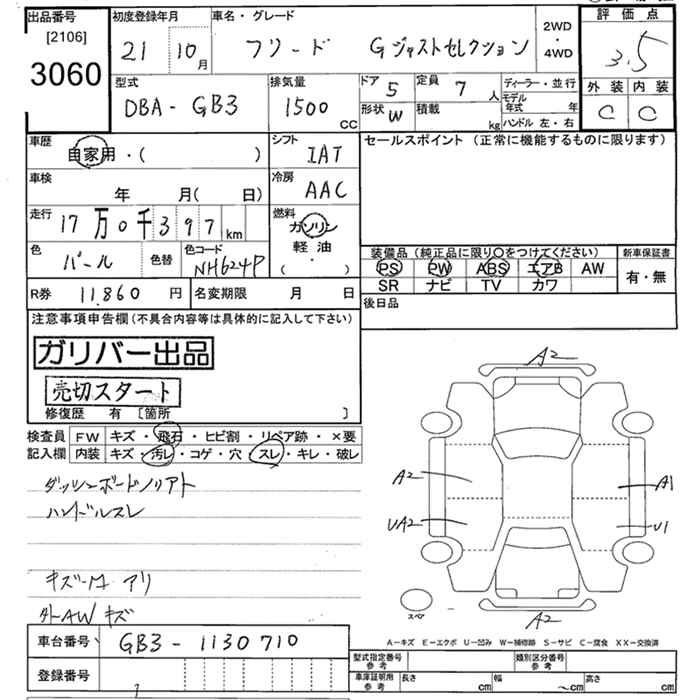 出品番号 初度登録年月 車名・グレード 2WD・4WD 評価点
[2106]
3060 21 10月 フリード Gジャストセレクション 3.5
型式 排気量 ドア 5 定員 7人 ディーラー・並行 外装 内装
DBA-GB3 1500 CC 形状 W 積載 kg モデル年式 年 C C
ハンドル 左・右
車歴 シフト セールスポイント (正常に機能するものに限ります)
自家用・( ) IAT
車検 冷房
年 月(日) AAC
走行 燃料
17万0千397km ガソリン
軽油
( ・ )
色 パール 色替 色コード NH624P 装備品 (純正品に限り○をつけてください) 新車保証書
PS PW ABS エアB AW 有・無
SR ナビ TV カワ
R券 11,860円 名変期限 月 日 後日品
注意事項申告欄(不具合内容等は具体的に記入して下さい)
ガリバー出品
売切スタート
修復歴 有 〔箇所 〕
検査員 FW キズ・飛石・ヒビ割・リペア跡・×要
記入欄 内装 キズ・汚レ・コゲ・穴・スレ・キレ・破レ
ダッシュボードノリアト
ハンドルスレ
アリ
外AWキズ
A2
A2 A1
UA2 U1
スペア
A2
A-キズ E-エクボ U-凹み W-補修跡 S-サビ C-腐食 XX-交換済
車台番号 GB3-1130710
登録番号
型式指定番号 参考 類別区分番号 参考
車庫証明用 参考 長さ cm 幅 ~cm 高さ cm